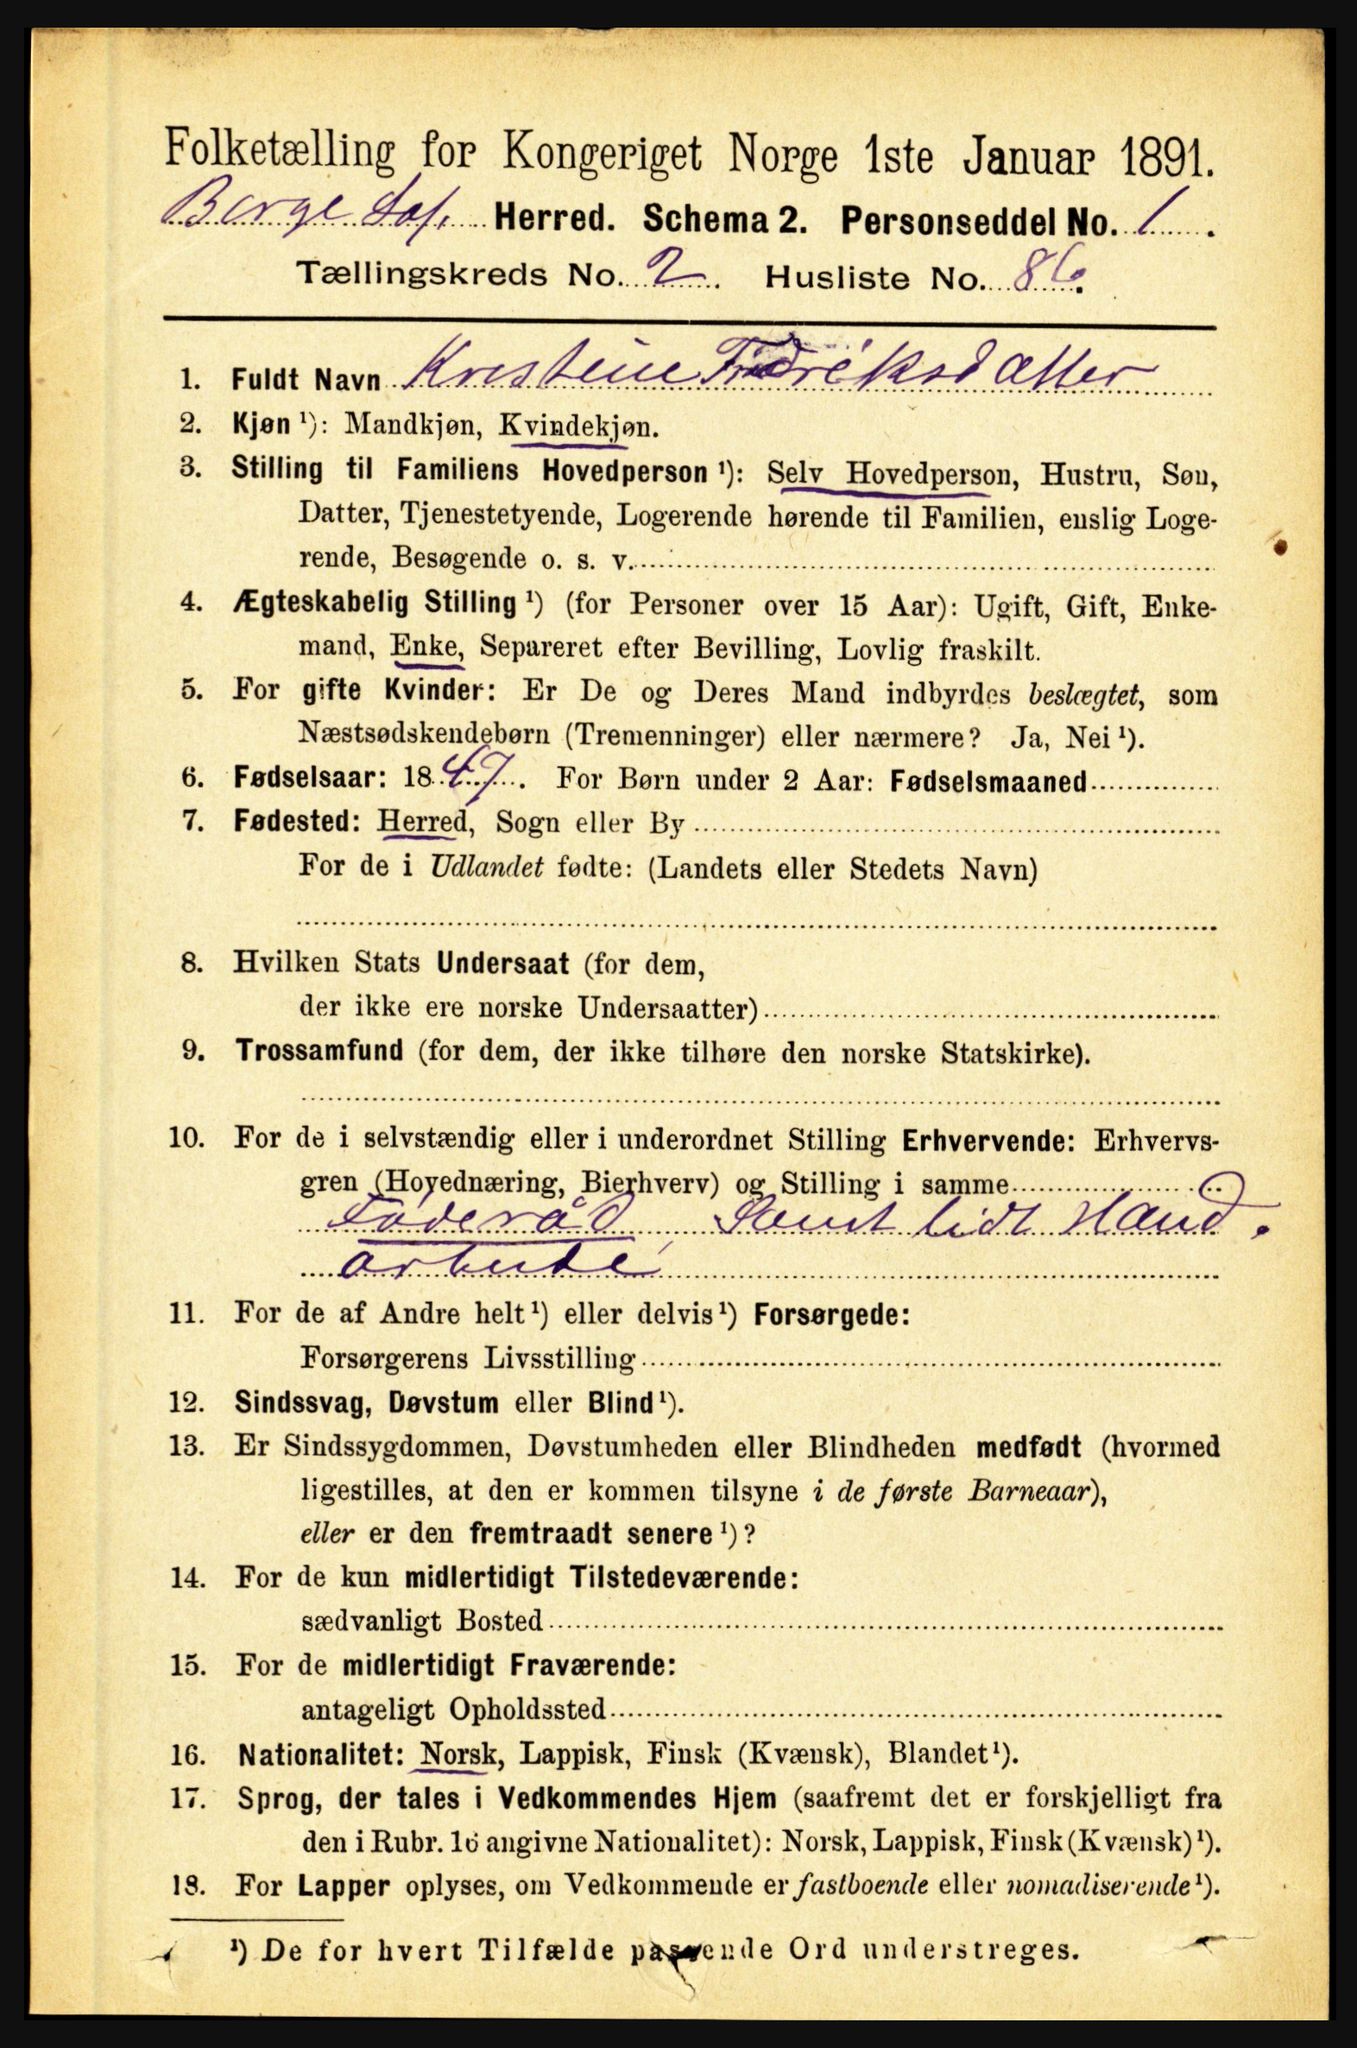 Folketælling for Kongeriget Norge 1ste Januar 1891.
Borge Lof. Herred. Schema 2. Personseddel No. 1.
Tællingskreds No. 2. Husliste No. 86.
1. Fuldt Navn Kristine Fredriksdatter
2. Kjøn ¹): Mandkjøn, Kvindekjøn.
3. Stilling til Familiens Hovedperson ¹): Selv Hovedperson, Hustru, Søn,
Datter, Tjenestetyende, Logerende hørende til Familien, enslig Loge-
rende, Besøgende o. s. v.
4. Ægteskabelig Stilling ¹) (for Personer over 15 Aar): Ugift, Gift, Enke-
mand, Enke, Separeret efter Bevilling, Lovlig fraskilt.
5. For gifte Kvinder: Er De og Deres Mand indbyrdes beslægtet, som
Næstsødskendebørn (Tremenninger) eller nærmere? Ja, Nei ¹).
6. Fødselsaar: 1847. For Børn under 2 Aar: Fødselsmaaned
7. Fødested: Herred, Sogn eller By
For de i Udlandet fødte: (Landets eller Stedets Navn)
8. Hvilken Stats Undersaat (for dem,
der ikke ere norske Undersaatter)
9. Trossamfund (for dem, der ikke tilhøre den norske Statskirke).
10. For de i selvstændig eller i underordnet Stilling Erhvervende: Erhvervs-
gren (Hovednæring, Bierhverv) og Stilling i samme
Føderåd Samt lidt Haand.
arbeide
11. For de af Andre helt ¹) eller delvis ¹) Forsørgede:
Forsørgerens Livsstilling
12. Sindssvag, Døvstum eller Blind ¹).
13. Er Sindssygdommen, Døvstumheden eller Blindheden medfødt (hvormed
ligestilles, at den er kommen tilsyne i de første Barneaar),
eller er den fremtraadt senere ¹)?
14. For de kun midlertidigt Tilstedeværende:
sædvanligt Bosted
15. For de midlertidigt Fraværende:
antageligt Opholdssted
16. Nationalitet: Norsk, Lappisk, Finsk (Kvænsk), Blandet ¹).
17. Sprog, der tales i Vedkommendes Hjem (saafremt det er forskjelligt fra
den i Rubr. 16 angivne Nationalitet): Norsk, Lappisk, Finsk (Kvænsk) ¹).
18. For Lapper oplyses, om Vedkommende er fastboende eller nomadiserende ¹).
¹) De for hvert Tilfælde passende Ord understreges.